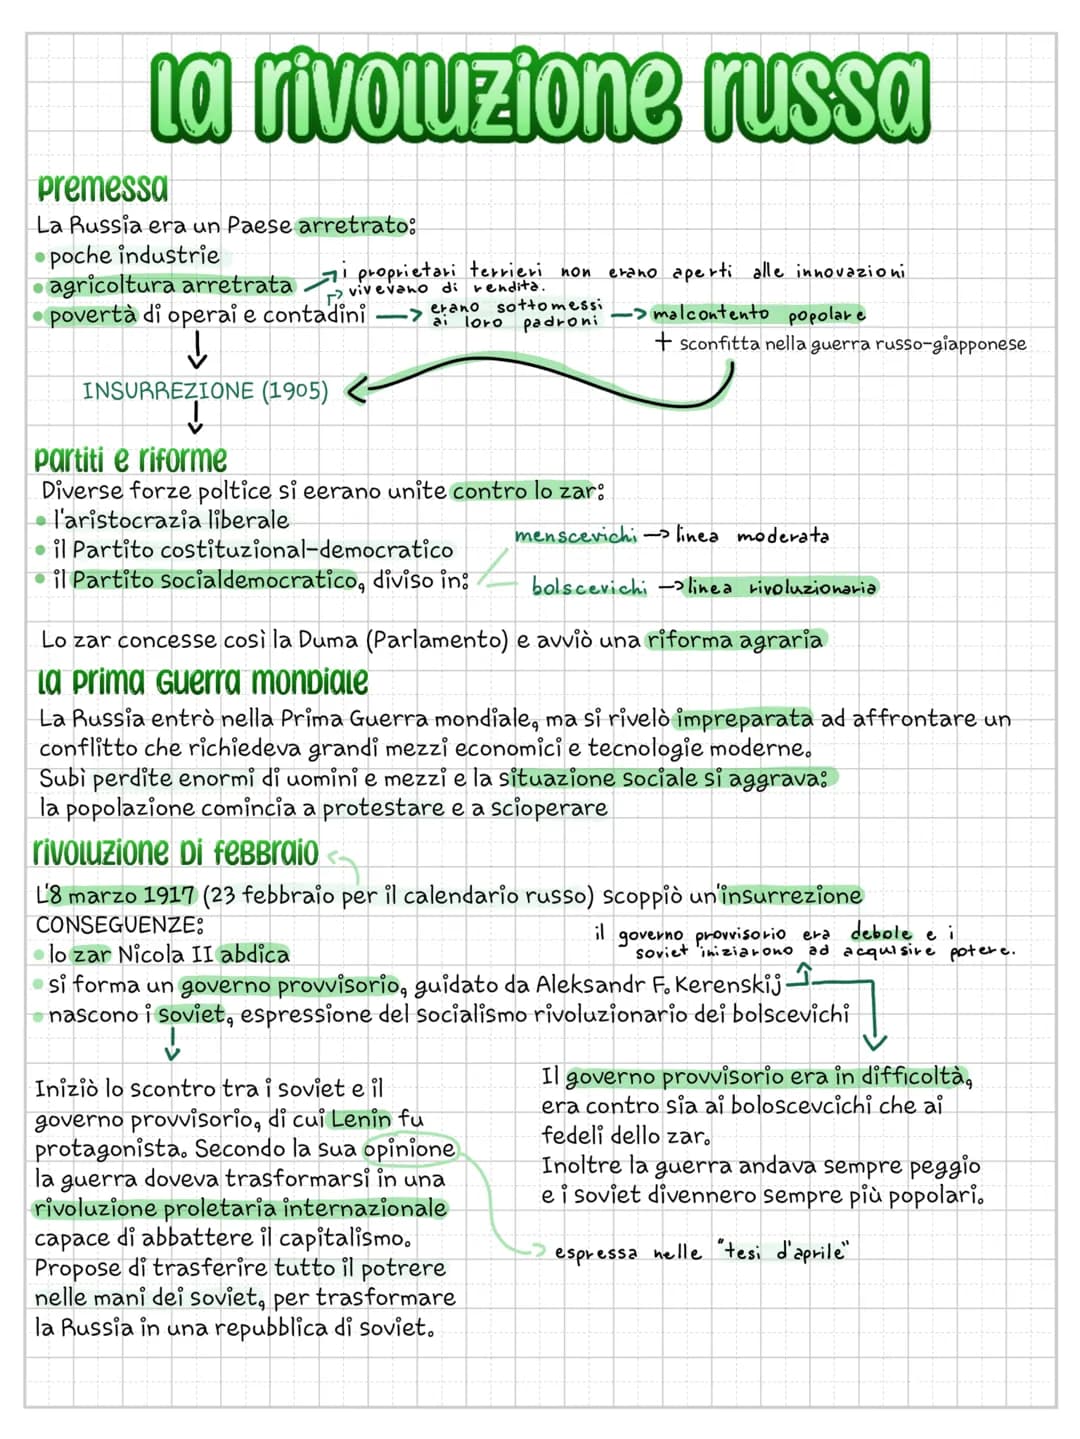 la rivoluzione russa
premessa
La Russia era un Paese arretrato:
• poche industrie
• agricoltura arretrata → i proprietari terrieri non erano aperti alle innovazioni
→ vivevano di rendita.
• povertà di operai e contadini → erano sottomessi → malcontento popolare
ai loro padroni
+ sconfitta nella guerra russo-giapponese
INSURREZIONE (1905)
partiti e riforme
Diverse forze poltice si eerano unite contro lo zar:
• l'aristocrazia liberale
• il Partito costituzional-democratico
menscevichi → linea moderata
• il Partito socialdemocratico, diviso in:
bolscevichi → linea rivoluzionaria
Lo zar concesse così la Duma (Parlamento) e avviò una riforma agraria
la prima guerra mondiale
La Russia entrò nella Prima Guerra mondiale, ma si rivelò impreparata ad affrontare un
conflitto che richiedeva grandi mezzi economici e tecnologie moderne.
Subì perdite enormi di uomini e mezzi e la situazione sociale si aggrava:
la popolazione comincia a protestare e a scioperare
rivoluzione di febbraio
L'8 marzo 1917 (23 febbraio per il calendario russo) scoppiò un'insurrezione
CONSEGUENZE:
• lo zar Nicola II abdica
il governo provvisorio era debole e i
soviet iniziarono ad acquisire potere.
• si forma un governo provvisorio, guidato da Aleksandr F. Kerenskij
• nascono i soviet, espressione del socialismo rivoluzionario dei bolscevichi
Iniziò lo scontro tra i soviet e il
governo provvisorio, di cui Lenin fu
protagonista. Secondo la sua opinione
la guerra doveva trasformarsi in una
rivoluzione proletaria internazionale
capace di abbattere il capitalismo.
Propose di trasferire tutto il potrere
nelle mani dei soviet, per trasformare
la Russia in una repubblica di soviet.
Il governo provvisorio era in difficoltà,
era contro sia ai boloscevcichi che ai
fedeli dello zar.
Inoltre la guerra andava sempre peggio
e i soviet divennero sempre più popolari.
espressa nelle "tesi d'aprile"